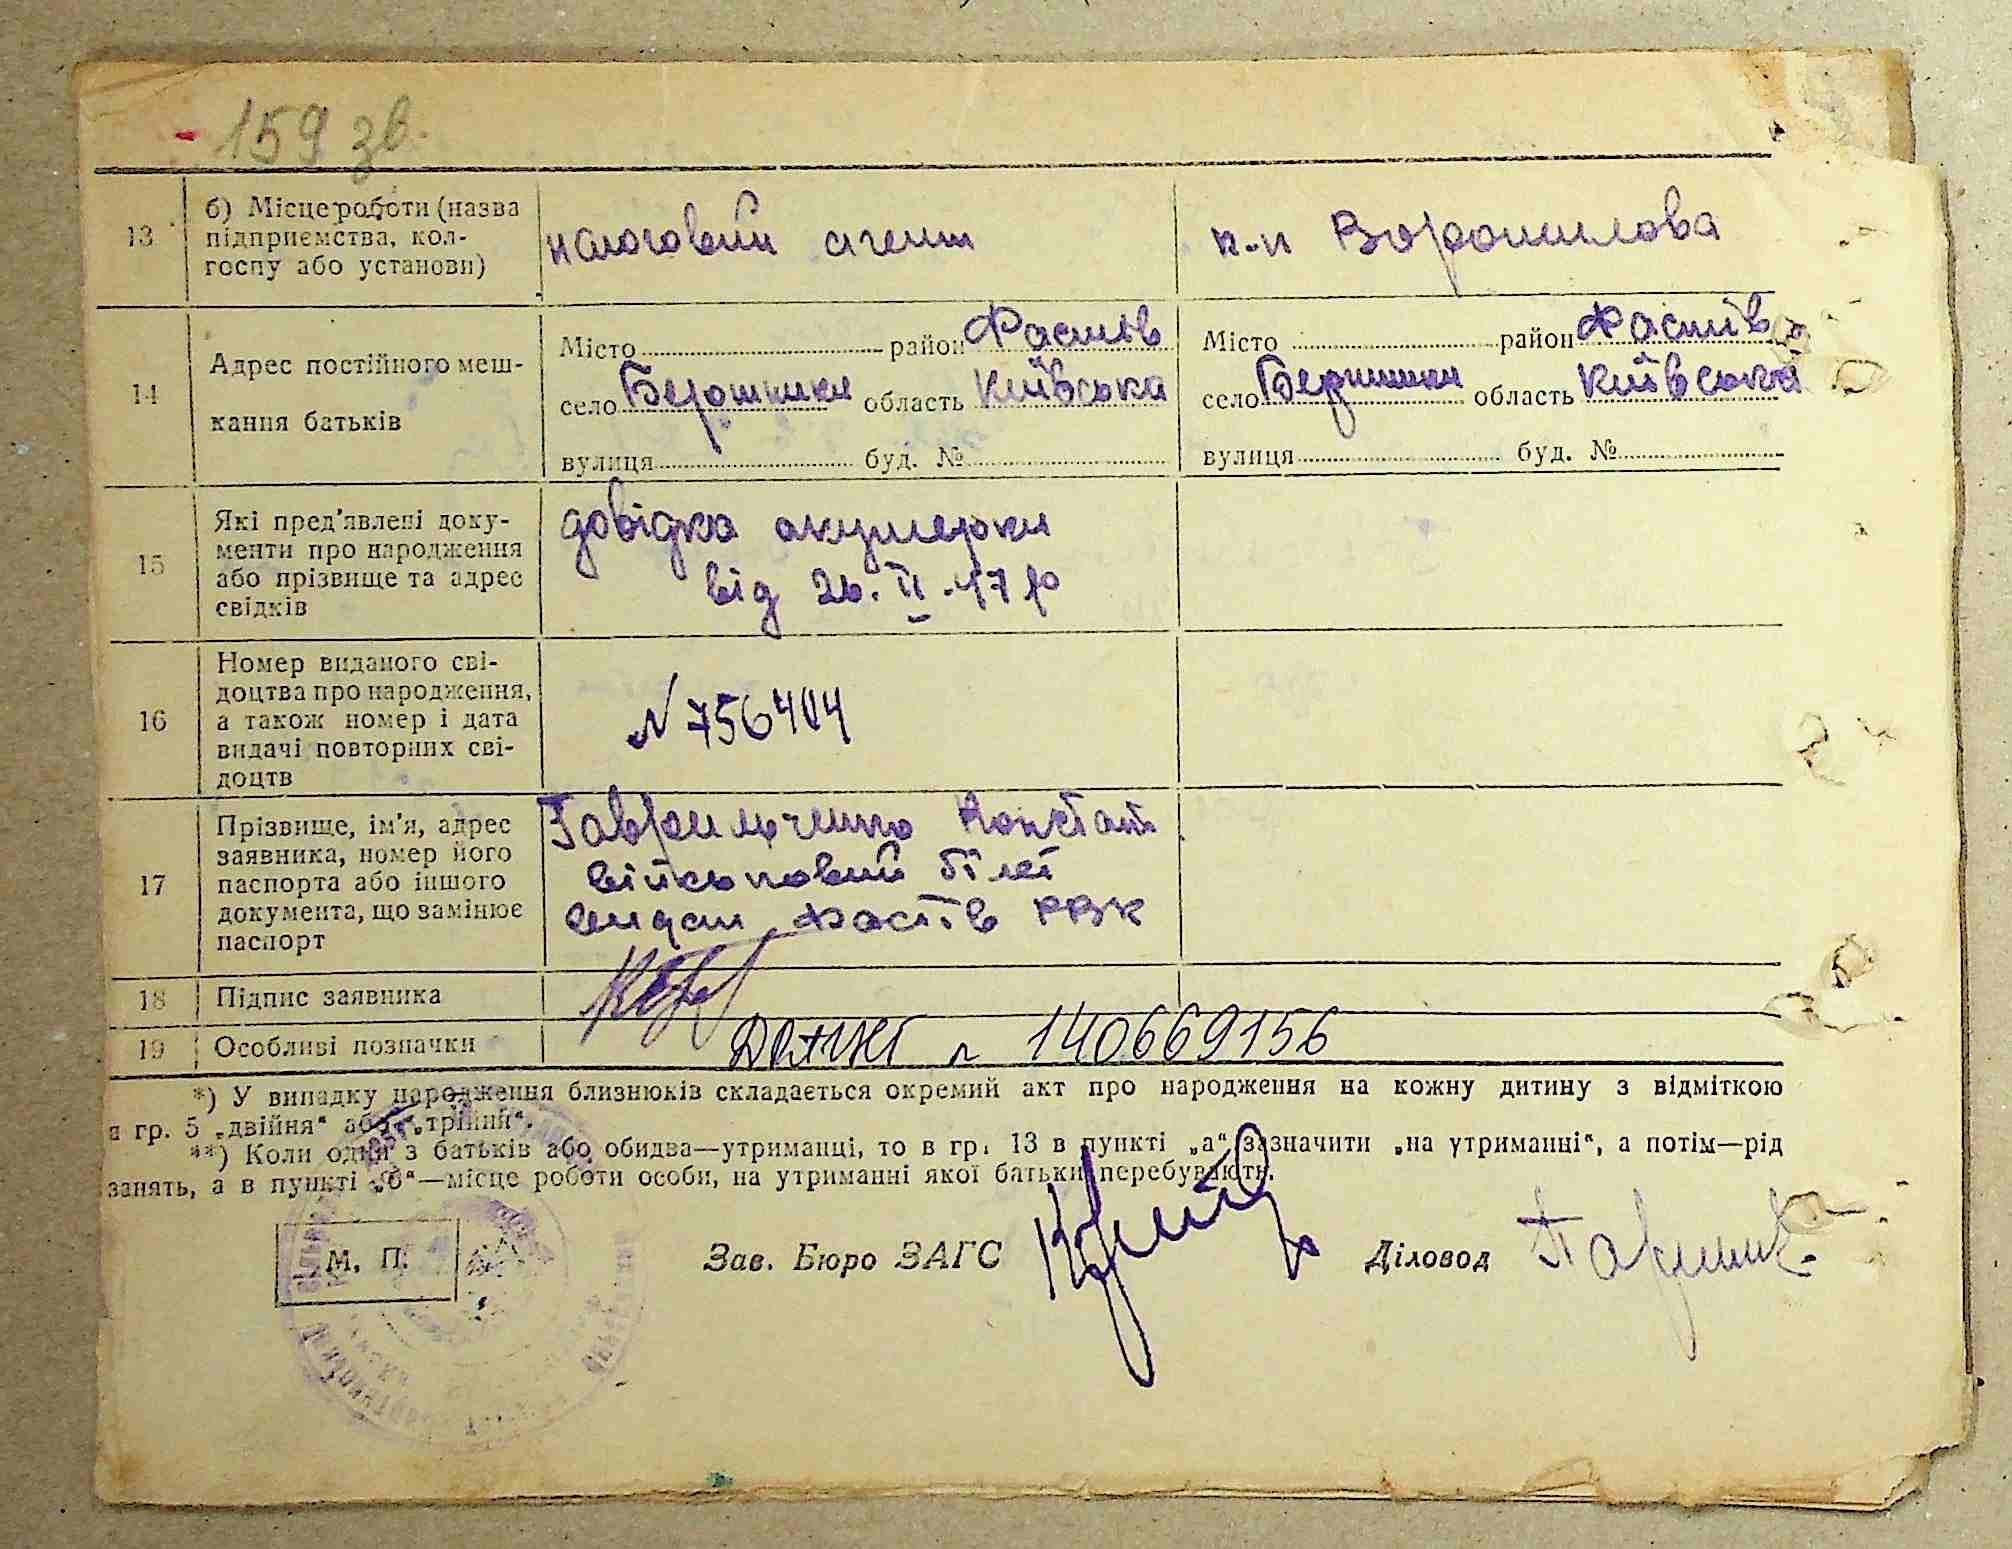 159 зв.
13
б) Місце роботи (назва
підприємства, кол-
госпу або установи)
налоговий агент
к-п Ворошилова
14
Адрес постійного меш-
кання батьків
Місто район Фастів
село область Київська
вулиця буд. №
Місто район Фастів
село область Київська
вулиця буд. №
15
Які пред'явлені доку-
менти про народження
або прізвище та адрес
свідків
довідка акушерки
від 26.II.47 р
16
Номер виданого сві-
доцтва про народження,
а також номер і дата
видачі повторних сві-
доцтв
N 756404
17
Прізвище, ім'я, адрес
заявника, номер його
паспорта або іншого
документа, що замінює
паспорт
Гаврильченко Констант
військовий білет
видан Фастів РВК
18
Підпис заявника
19
Особливі позначки
ДРАЦСГ N 140669156
*) У випадку народження близнюків складається окремий акт про народження на кожну дитину з відміткою
в гр. 5 „двійня“ або „трійня“.
**) Коли один з батьків або обидва—утриманці, то в гр. 13 в пункті „а“ зазначити „на утриманні“, а потім—рід
занять, а в пункті „б“—місце роботи особи, на утриманні якої батьки перебувають.
М. П.
Зав. Бюро ЗАГС
Діловод